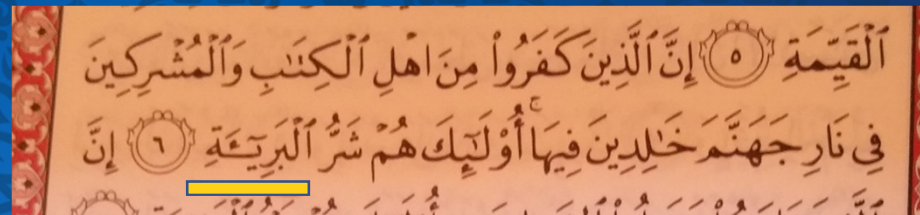 ٱلۡقَيِّمَةِ ٥ إِنَّ ٱلَّذِينَ كَفَرُواْ مِنَ اهۡلِ ٱلۡكِتَٰبِ وَٱلۡمُشۡرِكِينَ
فِي نَارِ جَهَنَّمَ خَٰلِدِينَ فِيهَاۚ أُوْلَٰٓئِكَ هُمۡ شَرُّ ٱلۡبَرِيٓـَٔةِ ٦ إِنَّ